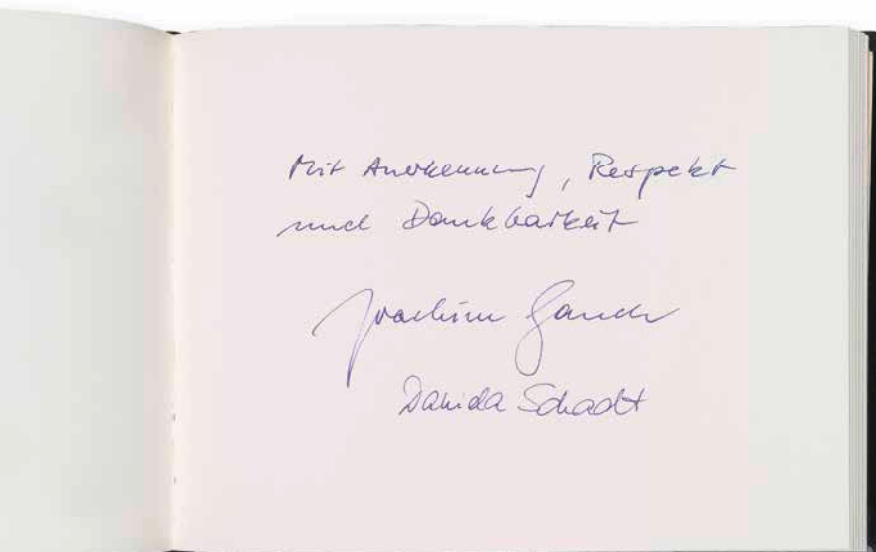 Mit Anerkennung, Respekt
und Dankbarkeit
Joachim Gauck
Daniela Schadt